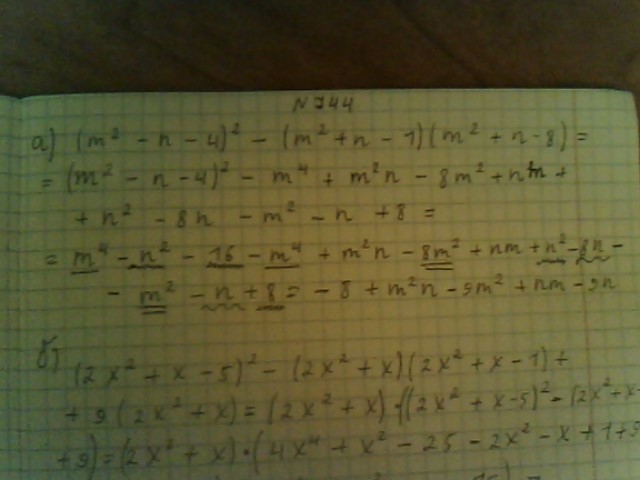 N 744
а) (m² - n - 4)² - (m² + n - 1)(m² + n - 8) =
= (m² - n - 4)² - m⁴ + m²n - 8m² + nm +
+ n² - 8n - m² - n + 8 =
= m⁴ - n² - 16 - m⁴ + m²n - 8m² + nm + n² - 8n -
- m² - n + 8 = - 8 + m²n - 9m² + nm - 9n
б) (2x² + x - 5)² - (2x² + x)(2x² + x - 1) +
+ 9(2x² + x) = (2x² + x) · ((2x² + x - 5)² - (2x² + x -
+ 9) = (2x² + x) · (4x⁴ + x² - 25 - 2x² - x + 1 + 9